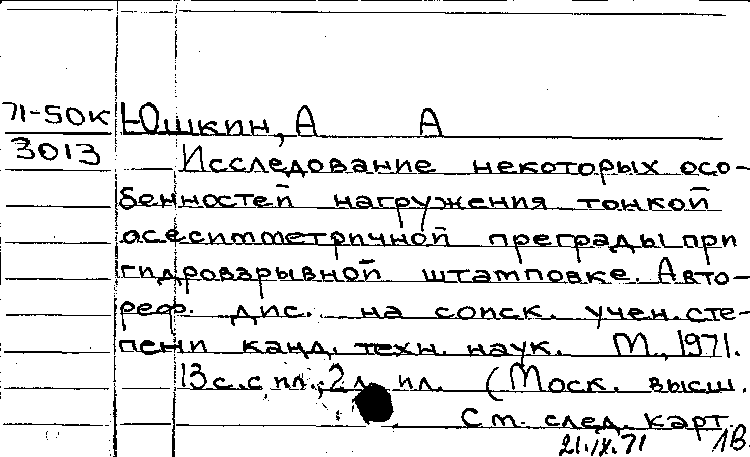 71-50к Юшкин, А А
3013 Исследование некоторых осо-
бенностей нагружения тонкой
осесимметричной преграды при
гидровзрывной штамповке. Авто-
реф. дис. на соиск. учен. сте-
пени канд. техн. наук. М., 1971.
13 с. с ил.; 2 л. ил. (Моск. высш.
См. след. карт
21.IX.71 1В